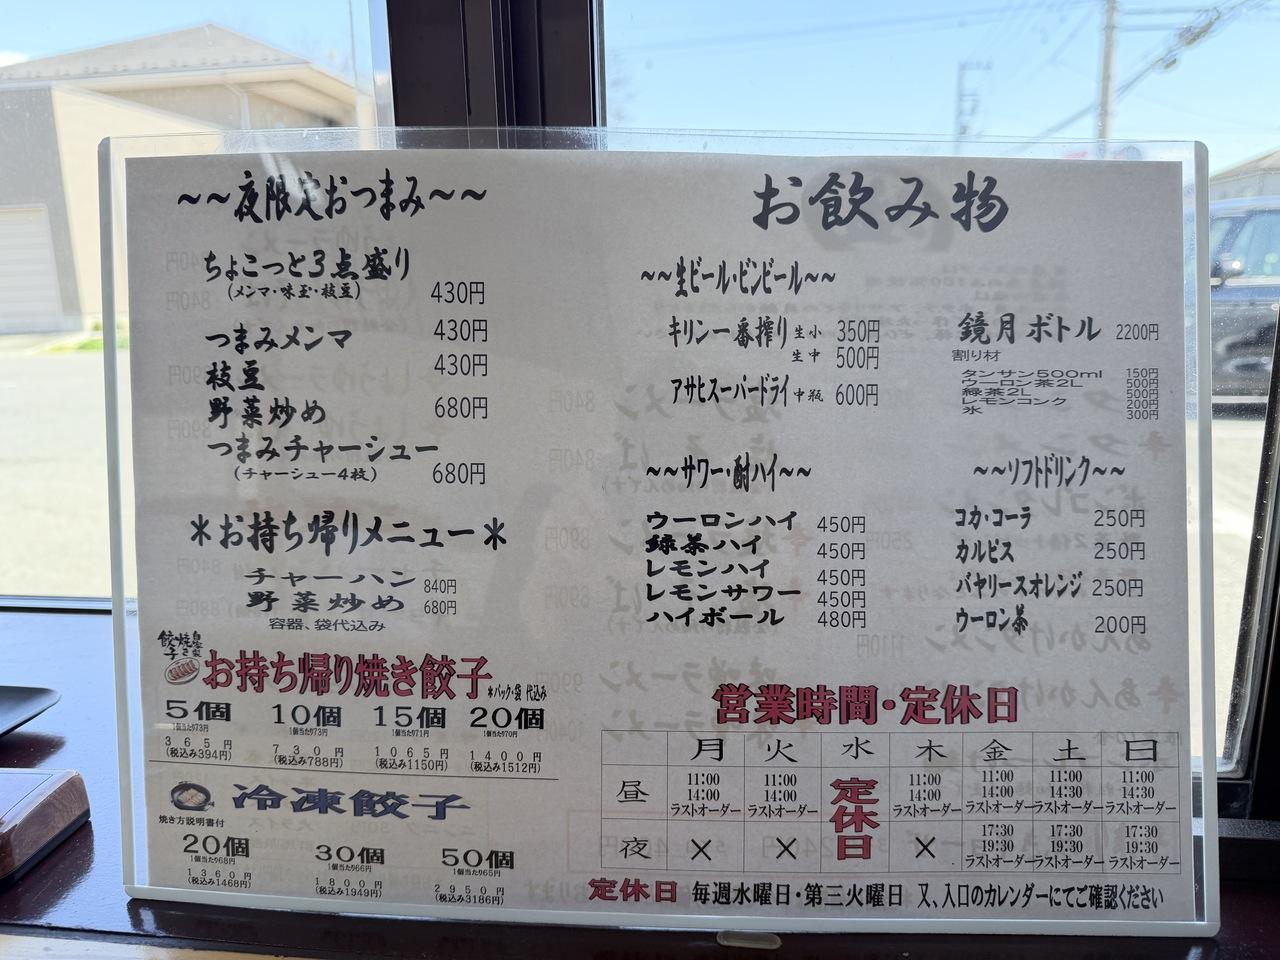 ～～夜限定おつまみ～～
ちょこっと3点盛り
（メンマ・味玉・枝豆） 430円
つまみメンマ 430円
枝豆 430円
野菜炒め 680円
つまみチャーシュー
（チャーシュー4枚） 680円
＊お持ち帰りメニュー＊
チャーハン 840円
野菜炒め 680円
容器、袋代込み
お持ち帰り焼き餃子
＊パック・袋 代込み
5個 10個 15個 20個
1個当た73円 1個当た73円 1個当た71円 1個当た70円
365円 730円 1065円 1400円
（税込み394円） （税込み788円） （税込み1150円） （税込み1512円）
冷凍餃子
焼き方説明書付
20個 30個 50個
1個当た68円 1個当た66円 1個当た65円
1360円 1800円 2950円
（税込み1468円） （税込み1949円） （税込み3186円）
お飲み物
～～生ビール・ビンビール～～
キリン一番搾り 生小 350円
生中 500円
アサヒスーパードライ 中瓶 600円
鏡月ボトル 2200円
割り材
タンサン500ml 150円
ウーロン茶2L 500円
緑茶2L 500円
レモンコンク 200円
氷 300円
～～サワー・酎ハイ～～
ウーロンハイ 450円
緑茶ハイ 450円
レモンハイ 450円
レモンサワー 450円
ハイボール 480円
～～ソフトドリンク～～
コカ・コーラ 250円
カルピス 250円
バヤリースオレンジ 250円
ウーロン茶 200円
営業時間・定休日
月 火 水 木 金 土 日
昼 11:00 11:00 定休日 11:00 11:00 11:00 11:00
14:00 14:00 14:00 14:00 14:30 14:30
ラストオーダー ラストオーダー ラストオーダー ラストオーダー ラストオーダー ラストオーダー
夜 × × × 17:30 17:30 17:30
19:30 19:30 19:30
ラストオーダー ラストオーダー ラストオーダー
定休日 毎週水曜日・第三火曜日 又、入口のカレンダーにてご確認ください